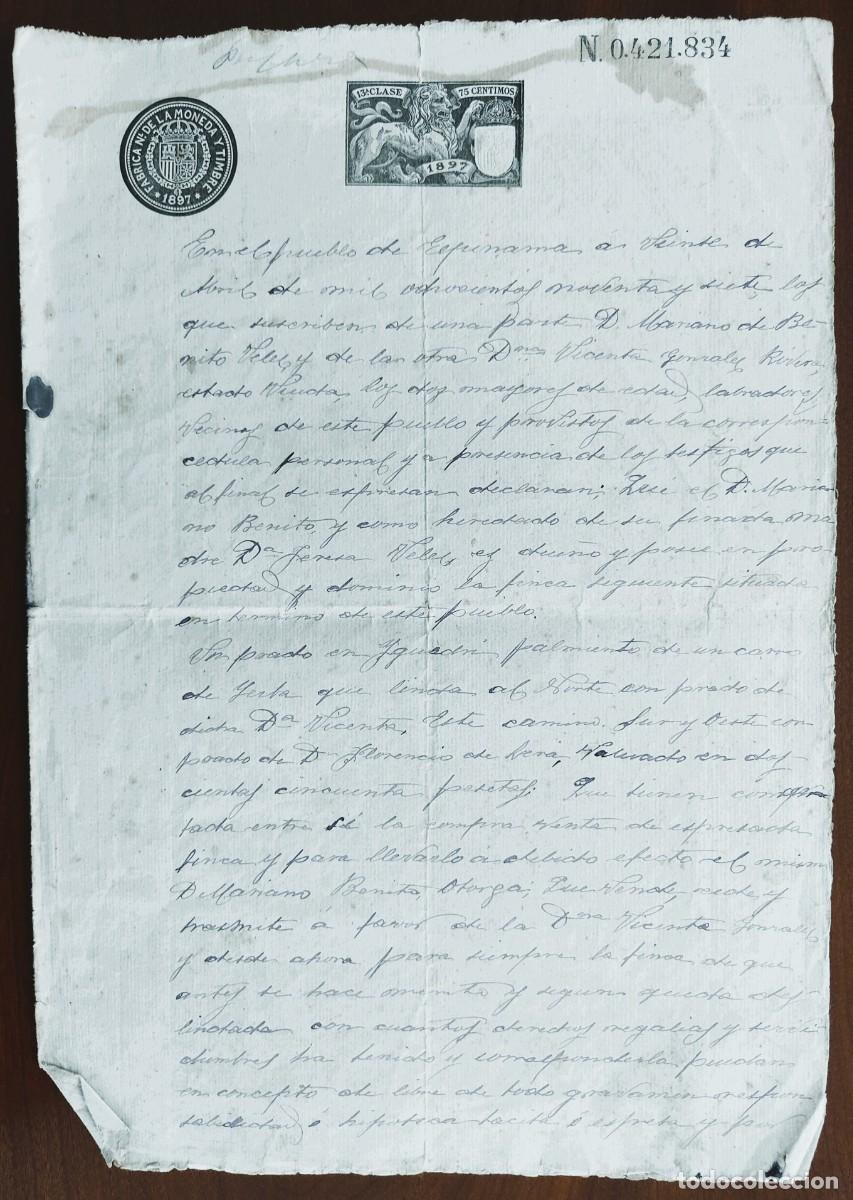 N. 0.421.834
13ª CLASE 75 CENTIMOS
1897
FABRICA Nal. DE LA MONEDA Y TIMBRE
* 1897 *
En el pueblo de Espinama á Veinte de
Abril de mil ochocientos noventa y siete, los
que suscriben de una parte D. Mariano de Be-
nito Velez y de la otra Dña Vicenta Gonzalez Rivero
estado Viuda, los dos mayores de edad, labradores
Vecinos de este pueblo y provistos de la correspon=
cedula personal y a presencia de los testigos que
al final se espresan declaran; Que el D. Maria
no Benito, y como heredado de su finada ma
dre Dª Teresa Velez, es dueño y posee en pro-
piedad y dominio la finca siguiente situada
en termino de este pueblo.
Un prado en Yguedri palmiento de un carro
de Yerba que linda al Norte con prado de
dicha Dª Vicenta, Este camino. Sur y Oeste con
prado de D. Florencio de Vera, Valuado en dos-
cientas cincuenta pesetas; Que tienen contra
tada entre sí la compra venta de espresada
finca y para llevarlo á debido efecto el mismo
D. Mariano Benito, Otorga; Que Vende, cede y
trasmite á favor de la Dña Vicenta Gonzalez
y desde ahora para siempre la finca de que
antes se hace merito y segun queda des-
lindada con cuantos derechos regalias y servi-
dumbres ha tenido y corresponderla puedan
en concepto de libre de todo gravamen respon
sabilidad é hipoteca tacita ó espresa y por
todocoleccion